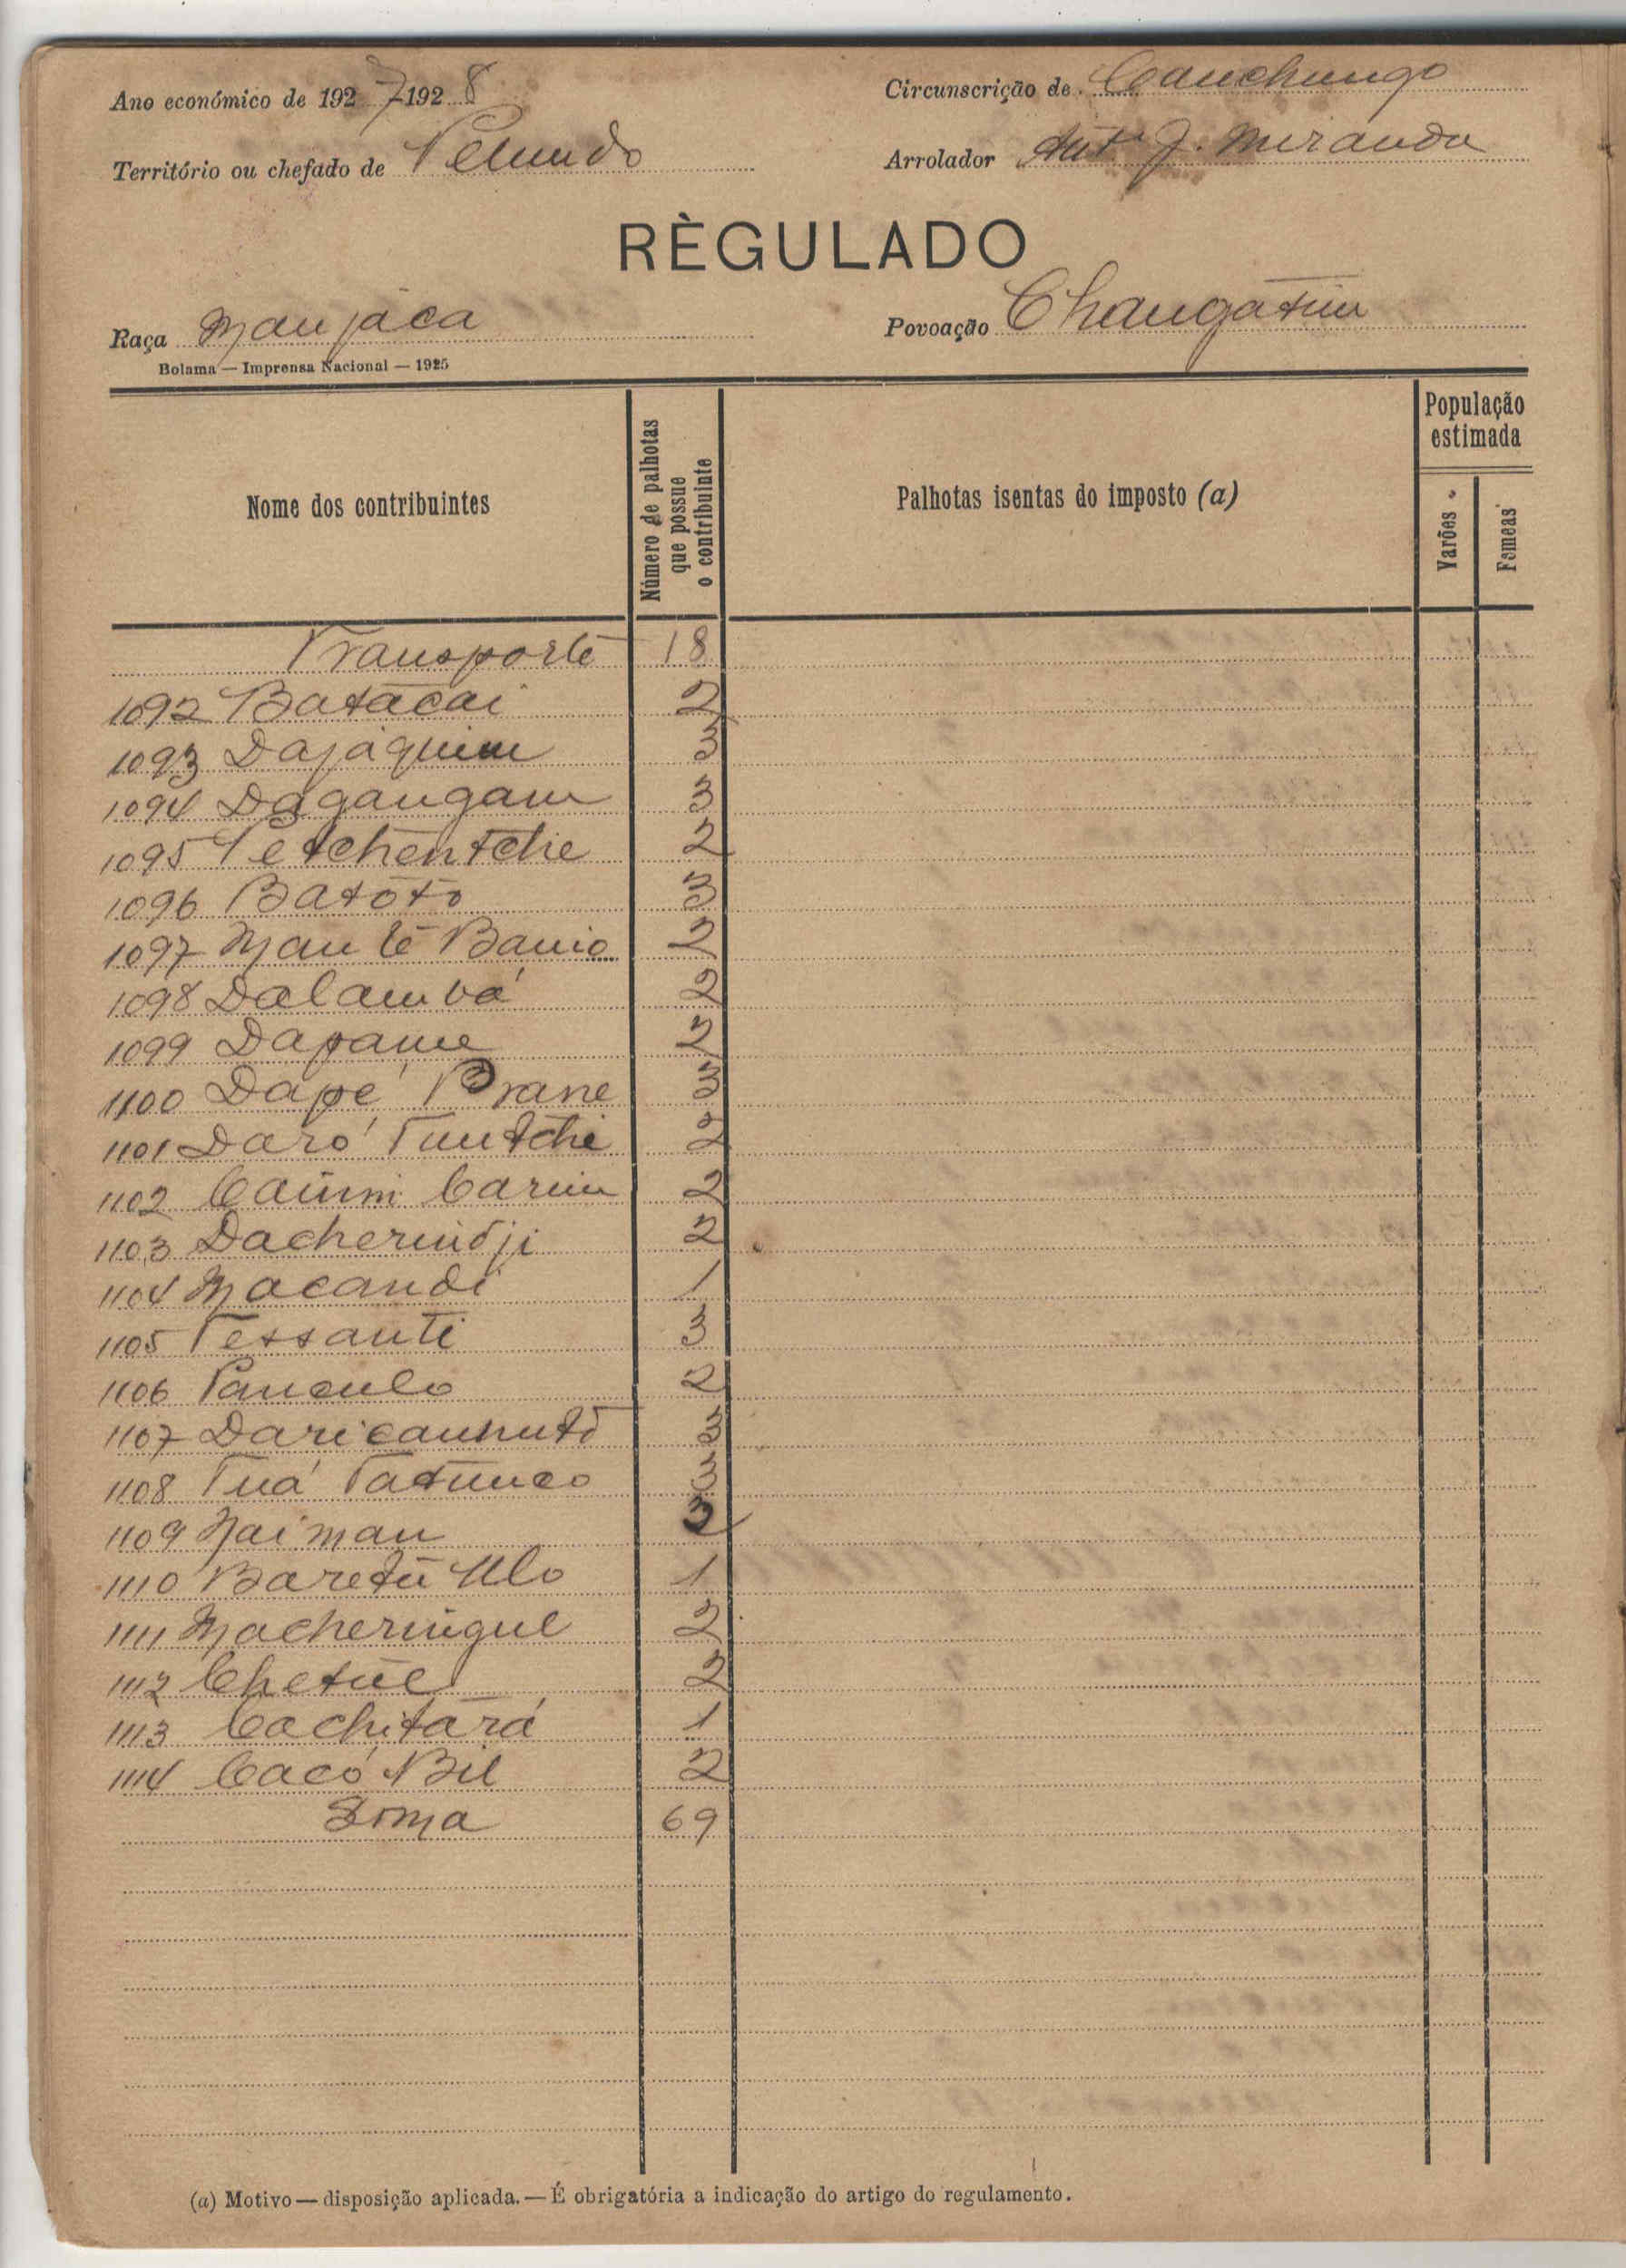 Ano económico de 1927-1928
Circunscrição de Canchungo
Território ou chefado de Pelundo
Arrolador Antº J. Miranda
RÈGULADO
Raça Manjaca
Povoação Changatim
Bolama — Imprensa Nacional — 1925
Nome dos contribuintes
Número de palhotas que possue o contribuinte
Palhotas isentas do imposto (a)
População estimada
Varões
Femeas
Transporte 18
1092 Batacai 2
1093 Dajáquim 3
1094 Dagangam 3
1095 Petchentche 2
1096 Batoto 3
1097 Manté Banio 2
1098 Dalambá 2
1099 Dapame 2
1100 Dapé Brane 3
1101 Daró Tuntche 2
1102 Caiumi Carim 2
1103 Dacherindji 2
1104 Macandi 1
1105 Tessanti 3
1106 Panculo 2
1107 Daricanhuto 3
1108 Tuá Tatunco 3
1109 Naiman 2
1110 Baretú Ulo 1
1111 Macheringul 2
1112 Chetúe 2
1113 Cachitará 1
1114 Cacó Bil 2
Soma 69
(a) Motivo — disposição aplicada. — É obrigatória a indicação do artigo do regulamento.